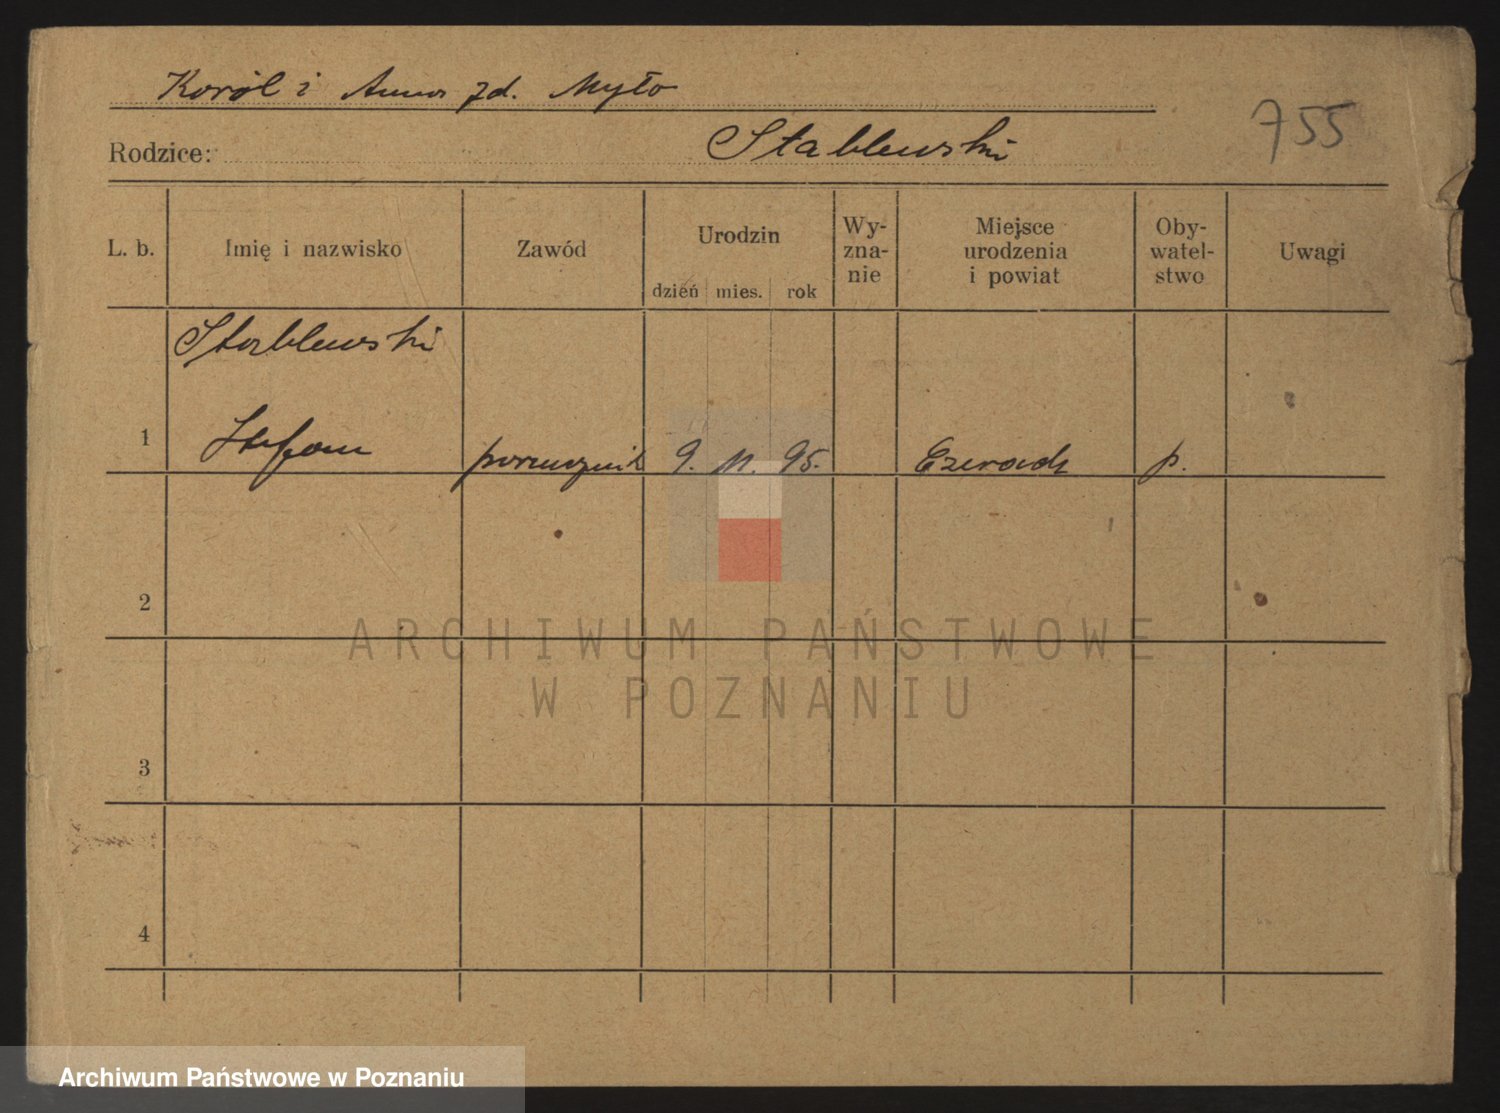 Karól i Anna zd. Myło
755
Rodzice: Stablewski
L. b. Imię i nazwisko Zawód Urodzin dzień mies. rok Wy-zna-nie Miejsce urodzenia i powiat Oby-watel-stwo Uwagi
Stablewski
1 Stefan porucznik 9. 11. 95. p.
2
3
4
ARCHIWUM PAŃSTWOWE
W POZNANIU
Archiwum Państwowe w Poznaniu